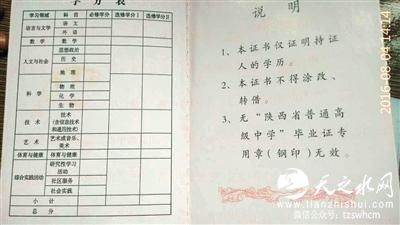 学分表
学习领域 科目 必修学分 选修学分Ⅰ 选修学分Ⅱ
语言与文学 语文
外语
数学 数学
人文与社会 思想政治
历史
地理
科学 物理
化学
生物
技术 技术
(含信息技术
和通用技术)
艺术 艺术或音乐、
美术
体育与健康 体育与健康
综合实践活动 研究性学习
活动
社区服务
社会实践
小计
总分
说明
1、本证书仅证明持证
人的学历。
2、本证书不得涂改、
转借。
3、无“陕西省普通高
级中学”毕业证专
用章(钢印)无效。
2016-08-04 14:14
天之水网
www.tianzhishui.com
微信公众号：tzswhcm